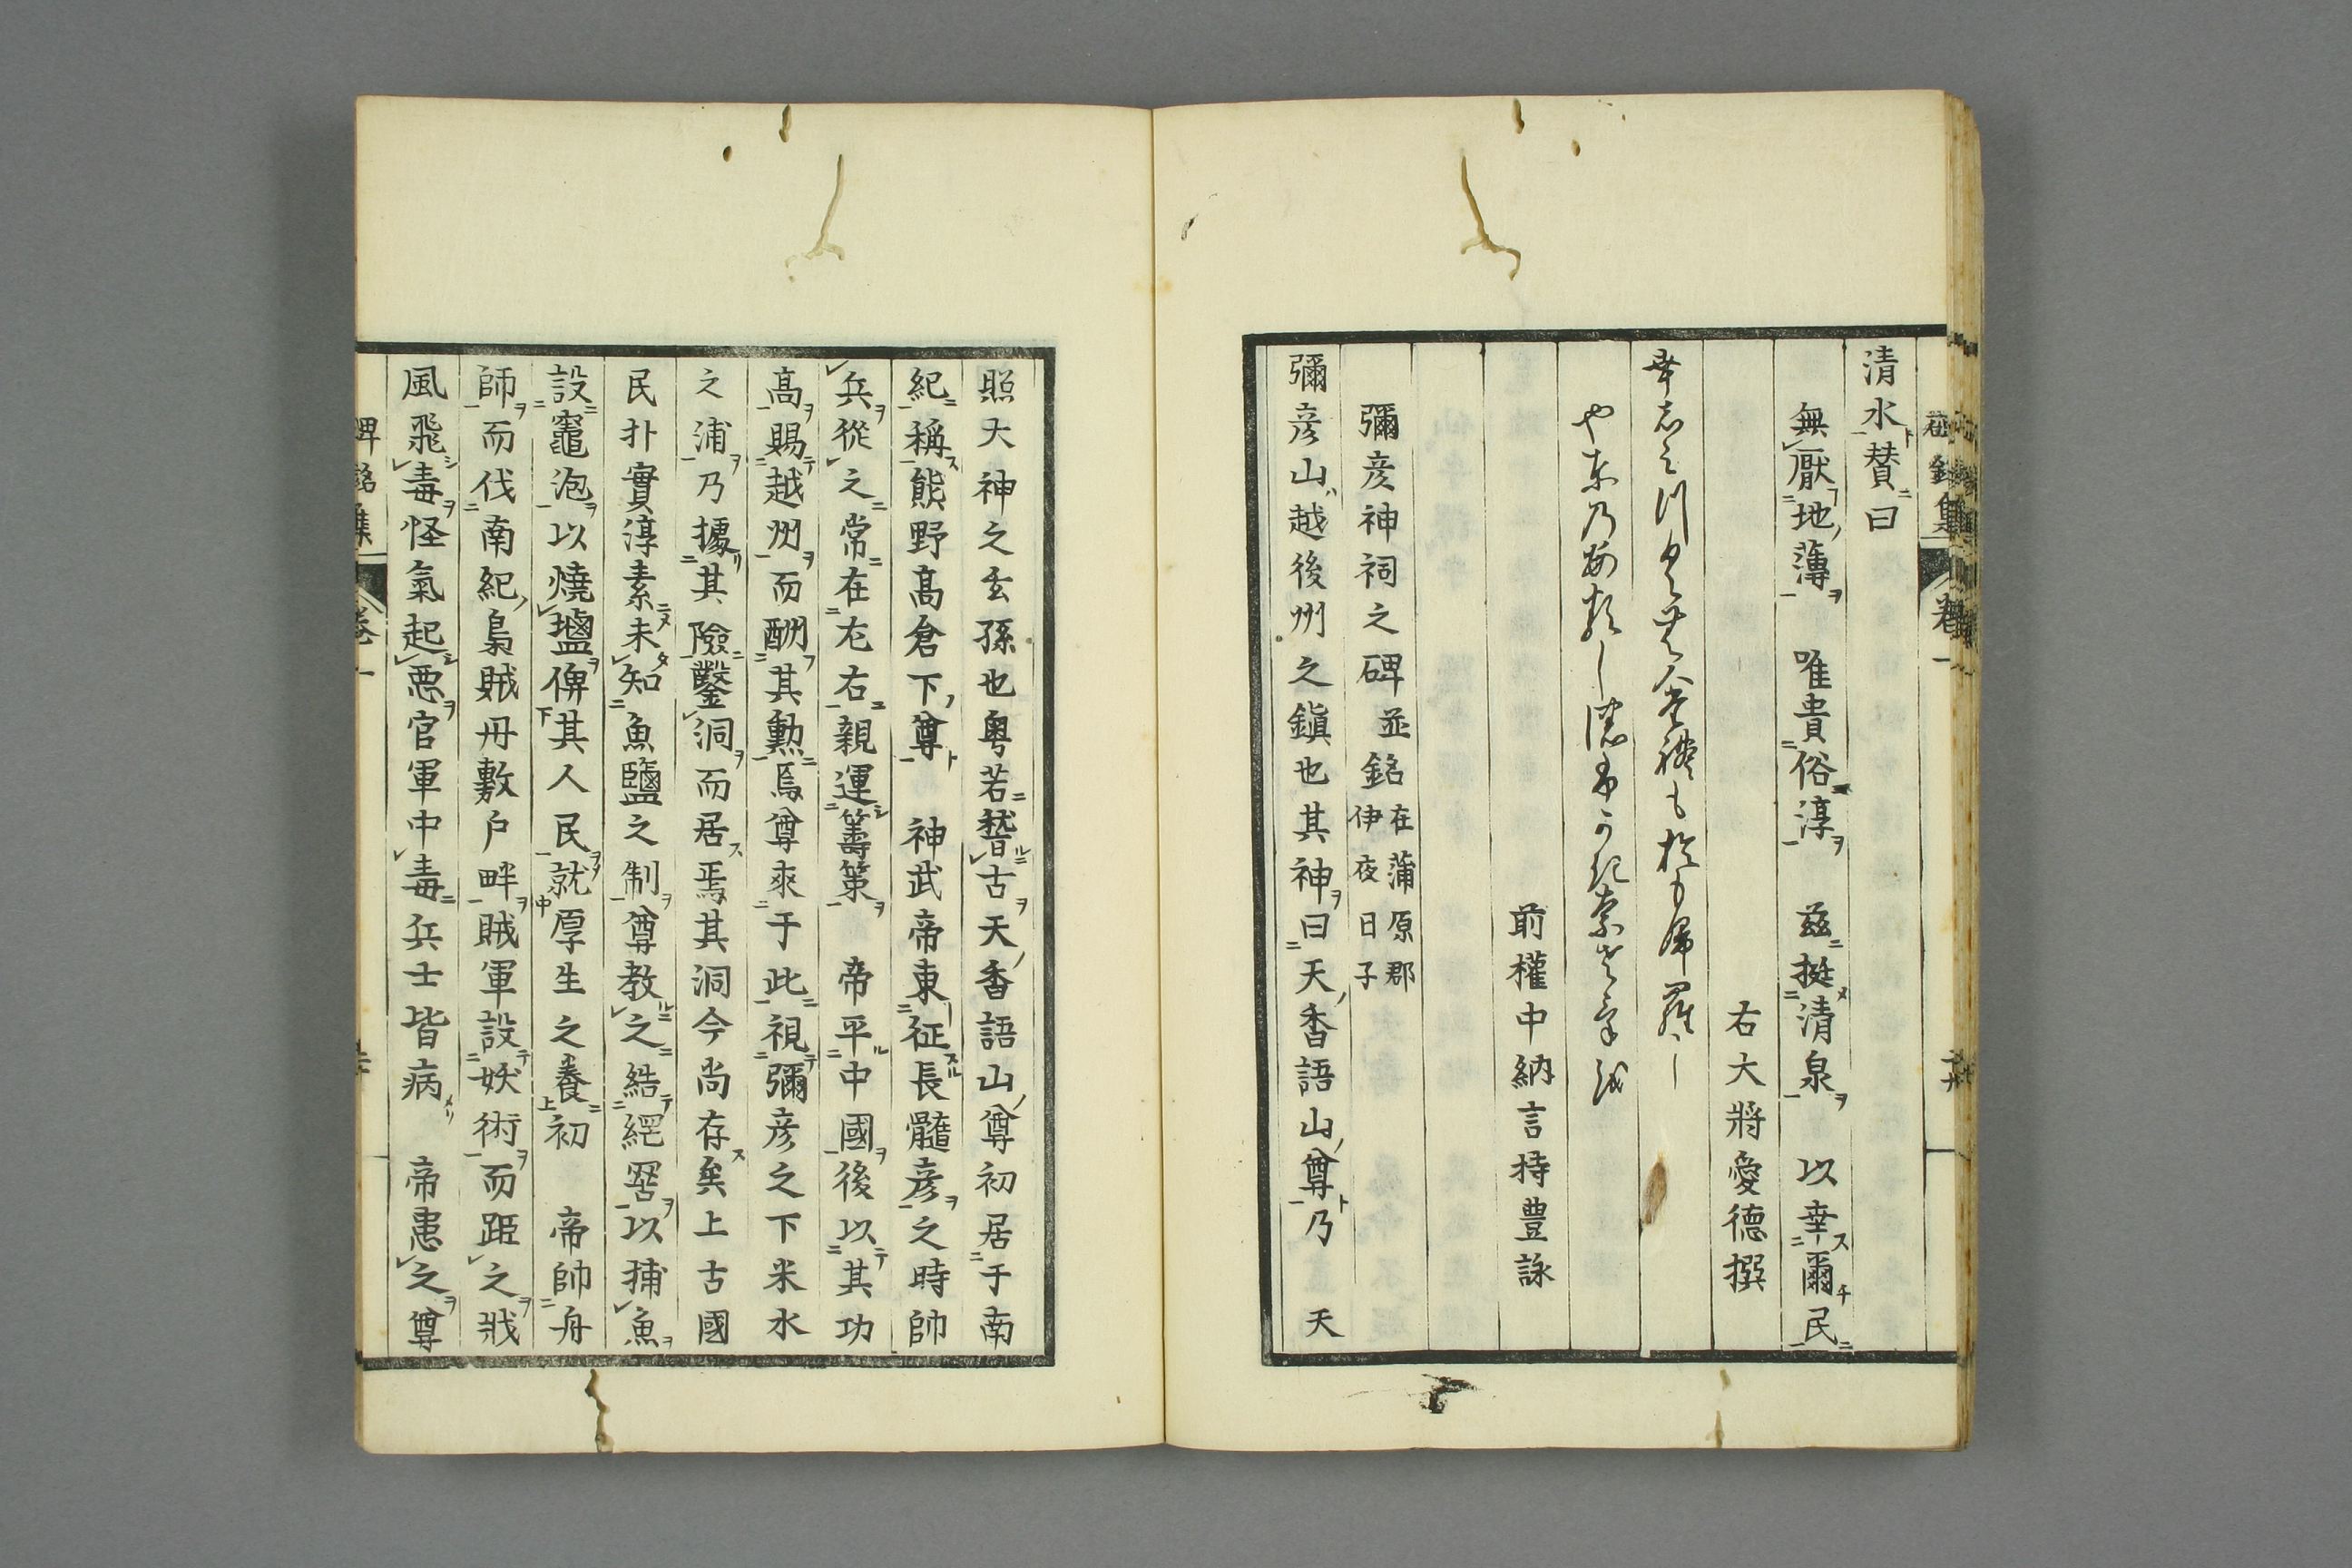 清水賛曰
無厭地薄　唯貴俗淳　茲挺清泉　以幸爾民
右大將愛德撰
前權中納言持豊詠
彌彦神祠之碑並銘 在蒲原郡伊夜日子
彌彦山越後州之鎭也其神曰天香語山尊乃　天
照大神之玄孫也粤若稽古天香語山尊初居于南
紀稱熊野髙倉下尊　神武帝東征長髓彦之時帥
兵從之常在左右親運籌策　帝平中國後以其功
髙賜越州而酬其勲焉尊來于此視彌彦之下米水
之浦乃據其險鑿洞而居焉其洞今尚存矣上古國
民朴實淳素未知魚鹽之制尊教之結網罟以捕魚
設竈泡以燒鹽俾其人民就厚生之養初　帝帥舟
師而伐南紀梟賊丹敷戸畔賊軍設妖術而距之戕
風飛毒怪氣起悪官軍中毒兵士皆病　帝患之尊
碑銘集
卷一